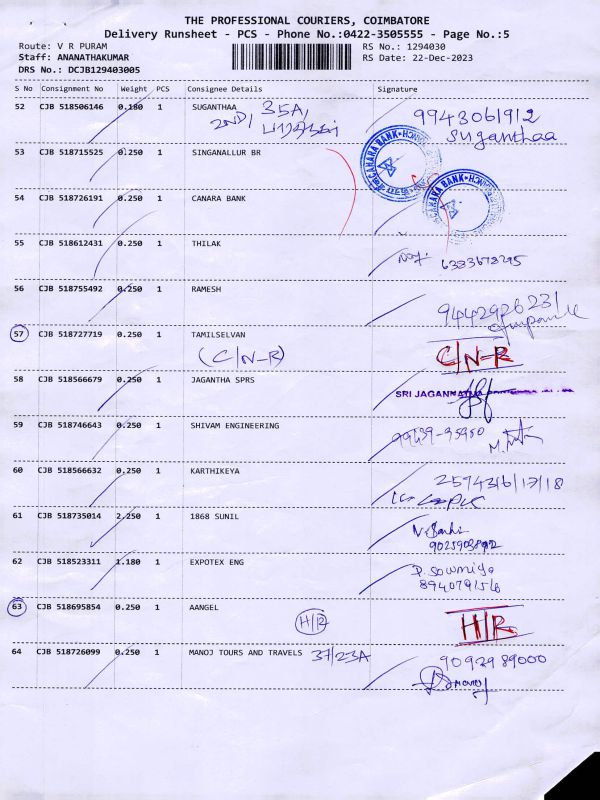 THE PROFESSIONAL COURIERS, COIMBATORE
Delivery Runsheet - PCS - Phone No.:0422-3505555 - Page No.:5
Route: V R PURAM
RS No.: 1294030
Staff: ANANATHAKUMAR
RS Date: 22-Dec-2023
DRS No.: DCJB129403005
S No Consignment No Weight PCS Consignee Details Signature
52 CJB 518506146 0.180 1 SUGANTHAA 35A, 9943061912
2ND, Suganthaa
53 CJB 518715525 0.250 1 SINGANALLUR BR
CANARA BANK
54 CJB 518726191 0.250 1 CANARA BANK
CANARA BANK
55 CJB 518612431 0.250 1 THILAK
6383678295
56 CJB 518755492 0.250 1 RAMESH
9442926231
57 CJB 518727719 0.250 1 TAMILSELVAN
(C/N-R) C/N-R
58 CJB 518566679 0.250 1 JAGANTHA SPRS
SRI JAGANNATHA
59 CJB 518746643 0.250 1 SHIVAM ENGINEERING
99439-95950
60 CJB 518566632 0.250 1 KARTHIKEYA
257436/17/18
61 CJB 518735014 2.250 1 1868 SUNIL
62 CJB 518523311 1.180 1 EXPOTEX ENG
P. Sowmiya
63 CJB 518695854 0.250 1 AANGEL
H/R H/R
64 CJB 518726099 0.250 1 MANOJ TOURS AND TRAVELS 37/23A 9092989000